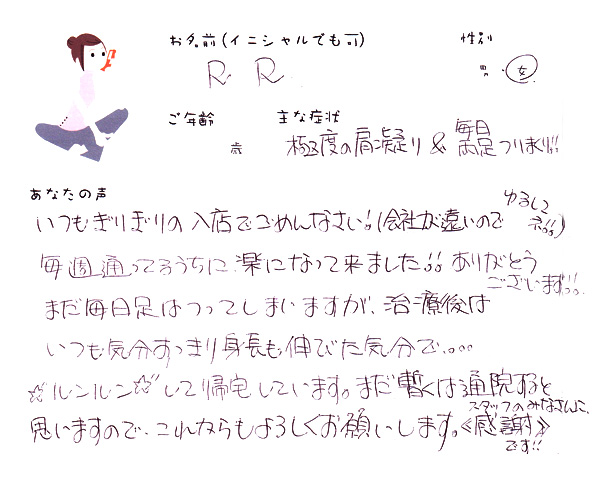 お名前(イニシャルでも可)
性別
R. R
男 ・ 女
ご年齢
主な症状
歳
極度の肩凝り & 毎日両足つりまくり!!
あなたの声
いつもぎりぎりの入店でごめんなさい!!(会社が遠いので ゆるしてネ!!)
毎週通ってるうちに楽になって来ました!! ありがとうございます!!
まだ毎日足はつってしまいますが、治療後は
いつも気分すっきり身長も伸びた気分で、。。。
☆ルンルン☆して帰宅しています。まだ暫くは通院すると
思いますので、これからもよろしくお願いします。スタッフのみなさんに、《感謝》です!!